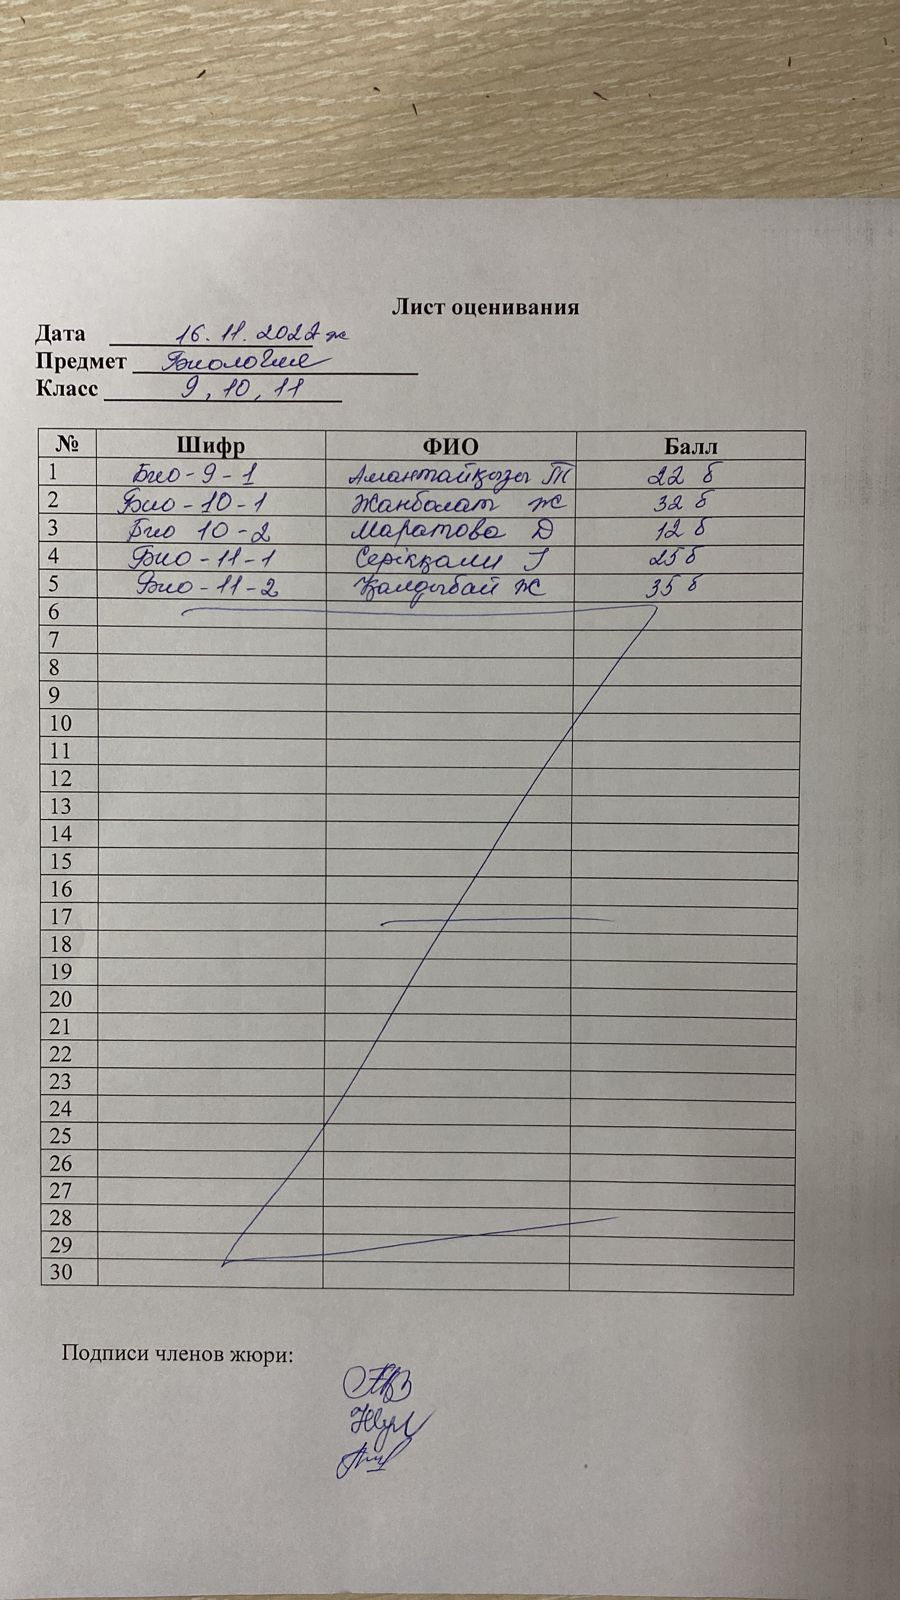 Лист оценивания
Дата 16.11.2022 ж
Предмет Биология
Класс 9, 10, 11
№ Шифр ФИО Балл
1 Био-9-1 Амантайқызы Т 22 б
2 Био-10-1 Жанболат Ж 32 б
3 Био 10-2 Маратова Д 12 б
4 Био-11-1 Серікқали Г 25 б
5 Био-11-2 Қалдыбай Ж 35 б
6
7
8
9
10
11
12
13
14
15
16
17
18
19
20
21
22
23
24
25
26
27
28
29
30
Подписи членов жюри: